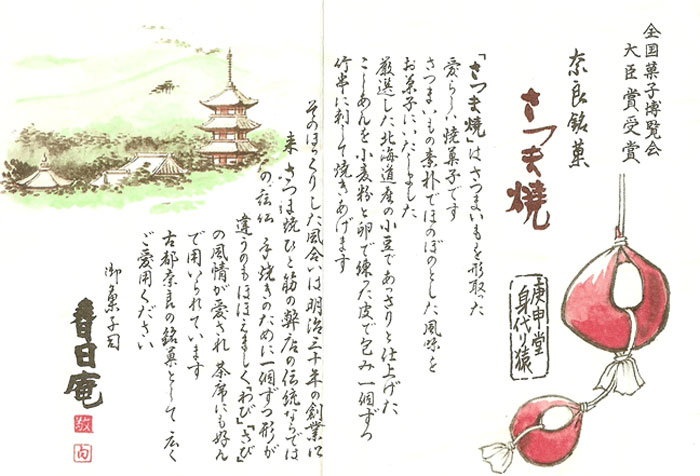 全国菓子博覧会
大臣賞受賞
奈良銘菓
さつま焼
庚申堂
身代り猿
「さつま焼」はさつまいもを形取った
愛らしい焼菓子です
さつまいもの素朴でほのぼのとした風味を
お菓子にいたしました
厳選した北海道産の小豆であっさりと仕上げた
こしあんを小麦粉と卵で練った皮で包み一個ずつ
竹串に刺して焼きあげます
そのほっくりした風合いは明治三十年の創業以
来 さつま焼ひと筋の弊店の伝統ならでは
の 手焼きのために一個ずつ形が
違うのもほほえましく「わび」「さび」
の風情が愛され 茶席にも好ん
で用いられています
古都奈良の銘菓として 広く
ご愛用ください
御菓子司
春日庵
敬